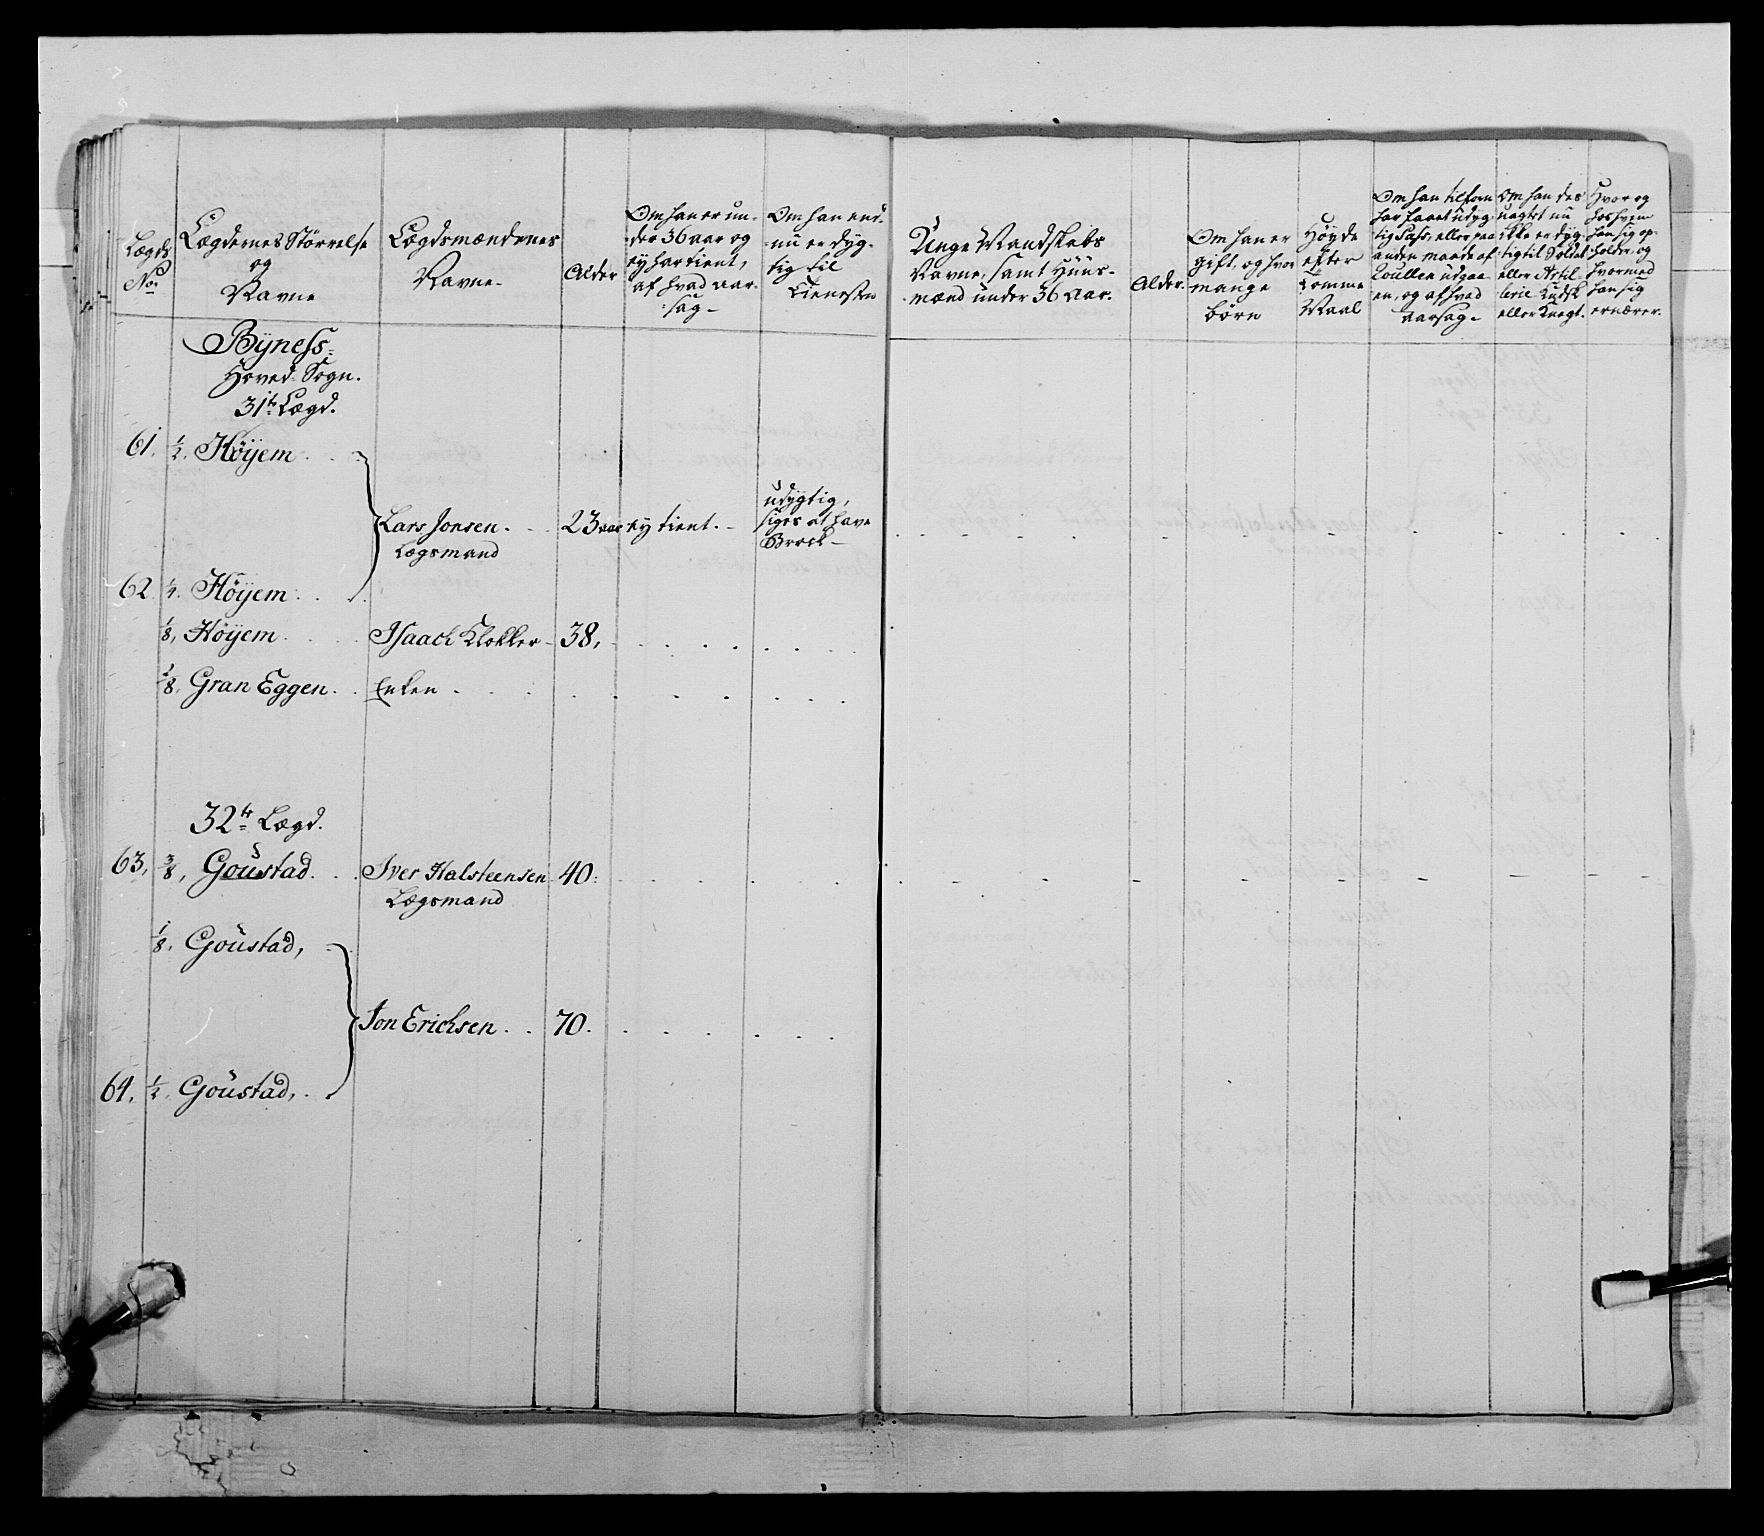 Lægds
No:
Lægdernes Størrelse
og
Navne
Lægdsmændenes
Navne
Alder
Om han er un-
der 36 aar og
ey har tient,
af hvad Aar-
sag
Om han end-
nu er dyg-
tig til
Tienesten
Unge Mandskabs
Navne, samt Huus-
mænd under 36 Aar.
Alder.
Om han er
gift, og hvor
mange
børn
Høyde
efter
Tomme
Maal
Om han tilforn
har faaet udyg-
tig Pass, eller paa
anden maade af
Roullen udgaa-
en, og af hvad
Aarsag
Om han des
uagtet nu
ikke er dyg-
tig til Soldat
eller Artil-
lerie Kudsk
eller Knegt.
Hvor og
hos hvem
han sig op-
holder, og
hvormed
han sig
ernærer.
Byness
Hoved-Sogn.
31te Lægd.
61. 1/2. Høyem
Lars Jonsen. 23 aar ey tient. udygtig,
siges at have
Brock
Lægsmand
62. 1/4. Høyem
1/8. Høyem Isaach Klokker 38.
1/8. Gran Eggen Enken
32te Lægd.
63. 3/8. Goustad. Iver Halsteensen 40.
Lægsmand
1/8. Goustad,
Jon Erichsen 70.
64. 1/2. Goustad,